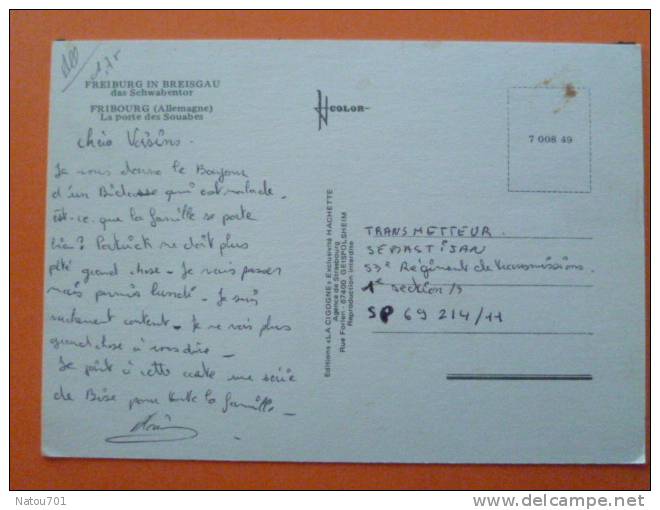 FREIBURG IN BREISGAU
das Schwabentor
FRIBOURG (Allemagne)
La porte des Souabes
COLOR
7 008 49
Je vous donne le Bonjour
d'un qui est malade.
est-ce que la famille se porte
bien? Patrick ne doit plus
grand chose. Je vais passer
mais permis lundi. Je suis
content. Je ne vois plus
grand chose à vous dire.
Je joint à cette carte une série
de Bise pour toute la famille.
Editions «LA CIGOGNE» Exclusivité HACHETTE
Agence de Strasbourg
Rue Forlen - 67400 GEISPOLSHEIM
Reproduction interdite
TRANSMETTEUR.
SEBASTIJAN
53e Régiment de transmissions.
1e section/3
SP 69 214/11
Natou701